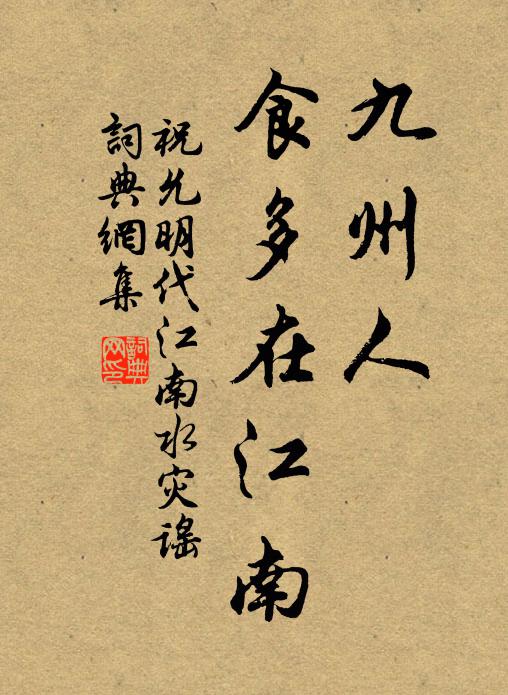 九州人
食多在江南
祝允明代江南水灾謠
詞典網集
詞典网印